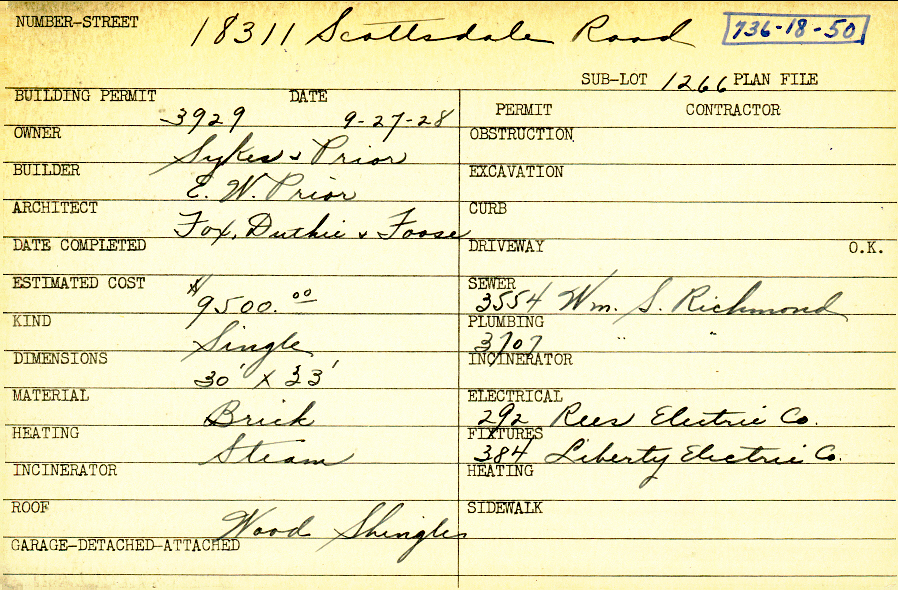 NUMBER-STREET 18311 Scottsdale Road 736-18-50
SUB-LOT 1266 PLAN FILE
BUILDING PERMIT DATE
3929 9-27-28
OWNER
Sykes & Prior
BUILDER
E. W. Prior
ARCHITECT
Fox, Duthie & Foose
DATE COMPLETED
ESTIMATED COST
$9500.00
KIND
Single
DIMENSIONS
30' x 33'
MATERIAL
Brick
HEATING
Steam
INCINERATOR
ROOF
Wood Shingles
GARAGE-DETACHED-ATTACHED
PERMIT CONTRACTOR
OBSTRUCTION
EXCAVATION
CURB
DRIVEWAY O.K.
SEWER
3554 Wm. S. Richmond
PLUMBING
3707 " "
INCINERATOR
ELECTRICAL
292 Rees Electric Co.
FIXTURES
384 Liberty Electric Co.
HEATING
SIDEWALK